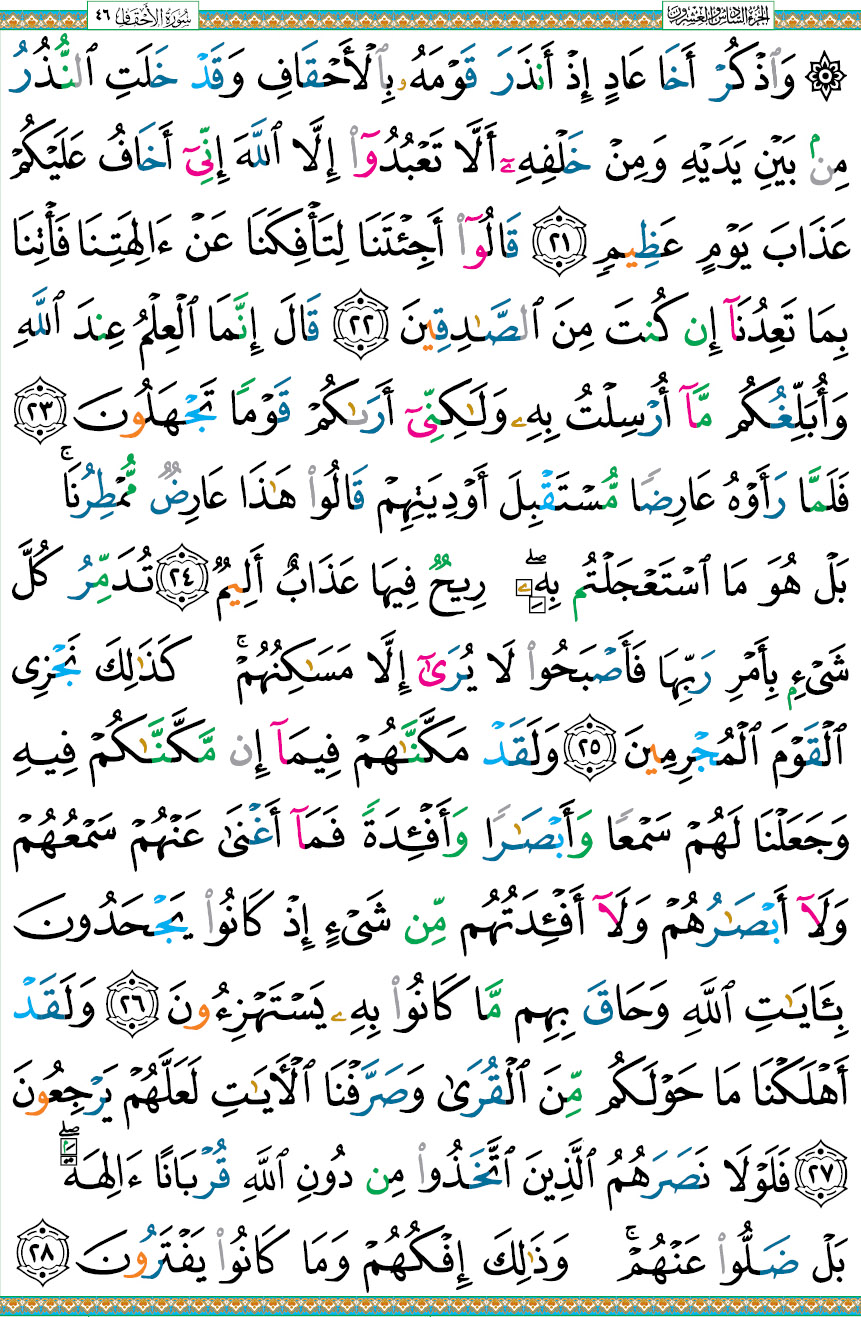 الجزء السادس والعشرون سورة الأحقاف ٤٦
۞ وَٱذْكُرْ أَخَا عَادٍ إِذْ أَنذَرَ قَوْمَهُۥ بِٱلْأَحْقَافِ وَقَدْ خَلَتِ ٱلنُّذُرُ
مِنۢ بَيْنِ يَدَيْهِ وَمِنْ خَلْفِهِۦٓ أَلَّا تَعْبُدُوٓا۟ إِلَّا ٱللَّهَ إِنِّىٓ أَخَافُ عَلَيْكُمْ
عَذَابَ يَوْمٍ عَظِيمٍ ٢١ قَالُوٓا۟ أَجِئْتَنَا لِتَأْفِكَنَا عَنْ ءَالِهَتِنَا فَأْتِنَا
بِمَا تَعِدُنَآ إِن كُنتَ مِنَ ٱلصَّٰدِقِينَ ٢٢ قَالَ إِنَّمَا ٱلْعِلْمُ عِندَ ٱللَّهِ
وَأُبَلِّغُكُم مَّآ أُرْسِلْتُ بِهِۦ وَلَٰكِنِّىٓ أَرَىٰكُمْ قَوْمًا تَجْهَلُونَ ٢٣
فَلَمَّا رَأَوْهُ عَارِضًا مُّسْتَقْبِلَ أَوْدِيَتِهِمْ قَالُوا۟ هَٰذَا عَارِضٌ مُّمْطِرُنَا ۚ
بَلْ هُوَ مَا ٱسْتَعْجَلْتُم بِهِۦ ۖ رِيحٌ فِيهَا عَذَابٌ أَلِيمٌ ٢٤ تُدَمِّرُ كُلَّ
شَىْءٍۭ بِأَمْرِ رَبِّهَا فَأَصْبَحُوا۟ لَا يُرَىٰٓ إِلَّا مَسَٰكِنُهُمْ ۚ كَذَٰلِكَ نَجْزِى
ٱلْقَوْمَ ٱلْمُجْرِمِينَ ٢٥ وَلَقَدْ مَكَّنَّٰهُمْ فِيمَآ إِن مَّكَّنَّٰكُمْ فِيهِ
وَجَعَلْنَا لَهُمْ سَمْعًا وَأَبْصَٰرًا وَأَفْـِٔدَةً فَمَآ أَغْنَىٰ عَنْهُمْ سَمْعُهُمْ
وَلَآ أَبْصَٰرُهُمْ وَلَآ أَفْـِٔدَتُهُم مِّن شَىْءٍ إِذْ كَانُوا۟ يَجْحَدُونَ
بِـَٔايَٰتِ ٱللَّهِ وَحَاقَ بِهِم مَّا كَانُوا۟ بِهِۦ يَسْتَهْزِءُونَ ٢٦ وَلَقَدْ
أَهْلَكْنَا مَا حَوْلَكُم مِّنَ ٱلْقُرَىٰ وَصَرَّفْنَا ٱلْءَايَٰتِ لَعَلَّهُمْ يَرْجِعُونَ
٢٧ فَلَوْلَا نَصَرَهُمُ ٱلَّذِينَ ٱتَّخَذُوا۟ مِن دُونِ ٱللَّهِ قُرْبَانًا ءَالِهَةًۢ ۖ
بَلْ ضَلُّوا۟ عَنْهُمْ ۚ وَذَٰلِكَ إِفْكُهُمْ وَمَا كَانُوا۟ يَفْتَرُونَ ٢٨